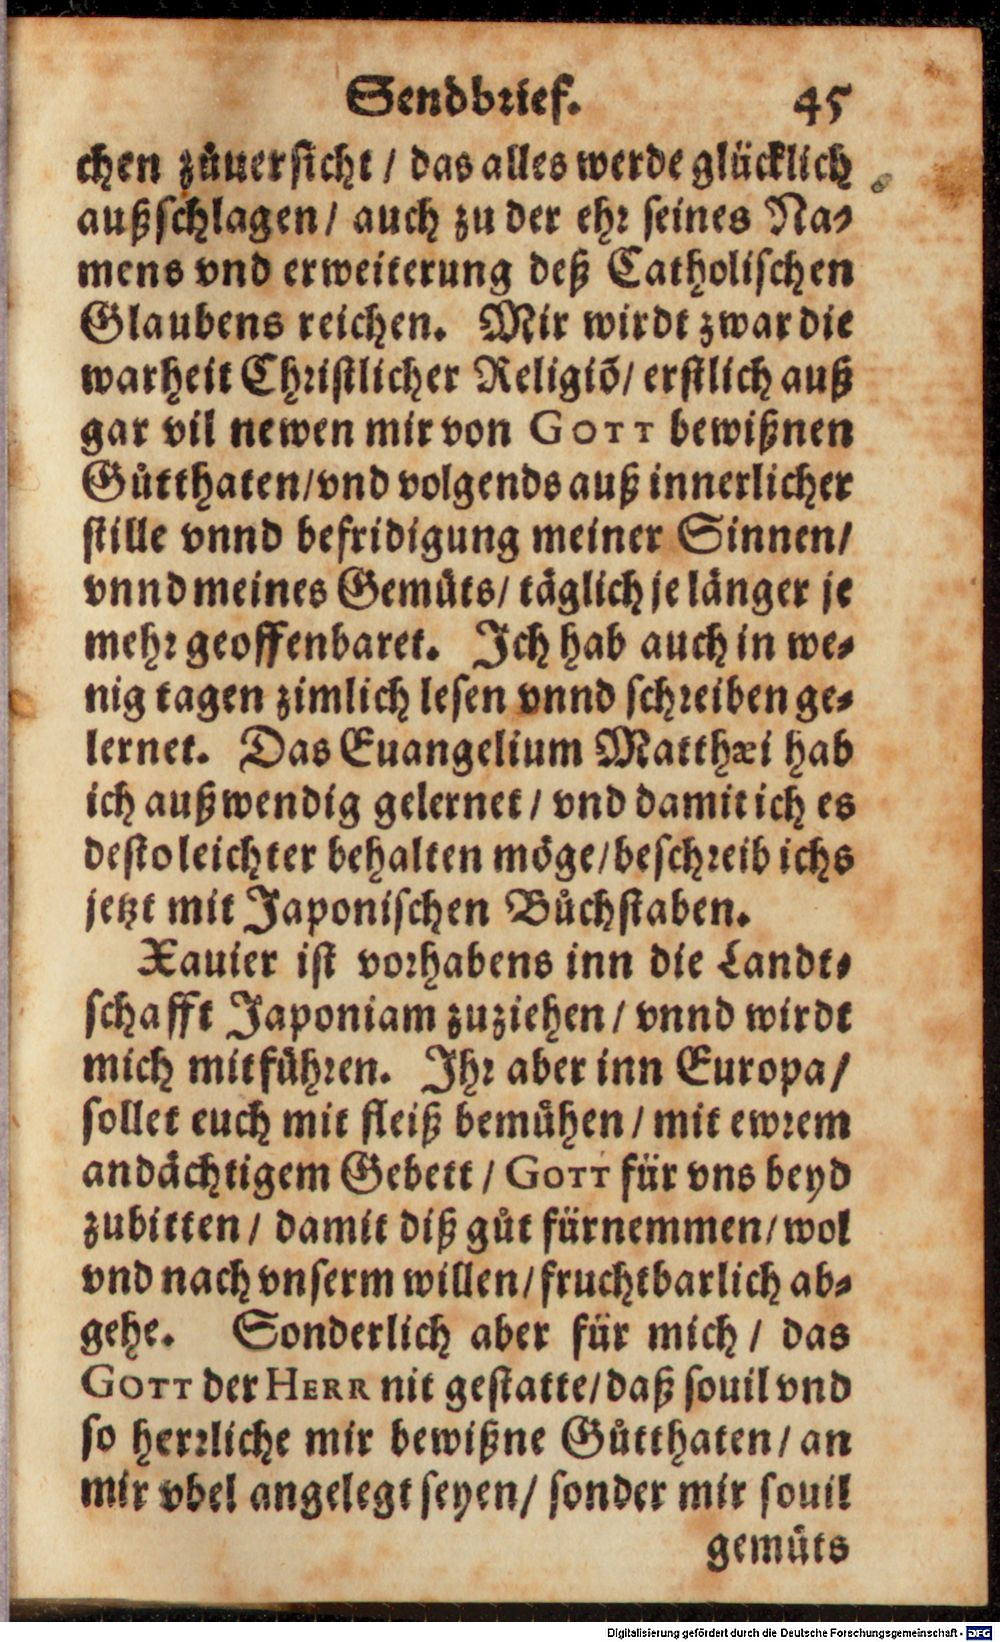 Sendbrief. 45
chen zůuersicht / das alles werde glücklich
außschlagen / auch zu der ehr seines Na-
mens vnd erweiterung deß Catholischen
Glaubens reichen. Mir wirdt zwar die
warheit Christlicher Religiō / erstlich auß
gar vil newen mir von GOTT bewißnen
Gůtthaten / vnd volgends auß innerlicher
stille vnnd befridigung meiner Sinnen /
vnnd meines Gemůts / täglich je länger je
mehr geoffenbaret. Ich hab auch in we-
nig tagen zimlich lesen vnnd schreiben ge-
lernet. Das Euangelium Matthæi hab
ich außwendig gelernet / vnd damit ich es
desto leichter behalten möge / beschreib ichs
jetzt mit Japonischen Bůchstaben.
Xauier ist vorhabens inn die Landt-
schafft Japoniam zuziehen / vnnd wirdt
mich mitführen. Ihr aber inn Europa /
sollet euch mit fleiß bemühen / mit ewrem
andächtigem Gebett / GOTT für vns beyd
zubitten / damit diß gůt fürnemmen / wol
vnd nach vnserm willen / fruchtbarlich ab-
gehe. Sonderlich aber für mich / das
GOTT der HERR nit gestatte / daß souil vnd
so herrliche mir bewißne Gůtthaten / an
mir vbel angelegt seyen / sonder mir souil
gemůts
Digitalisierung gefördert durch die Deutsche Forschungsgemeinschaft - DFG